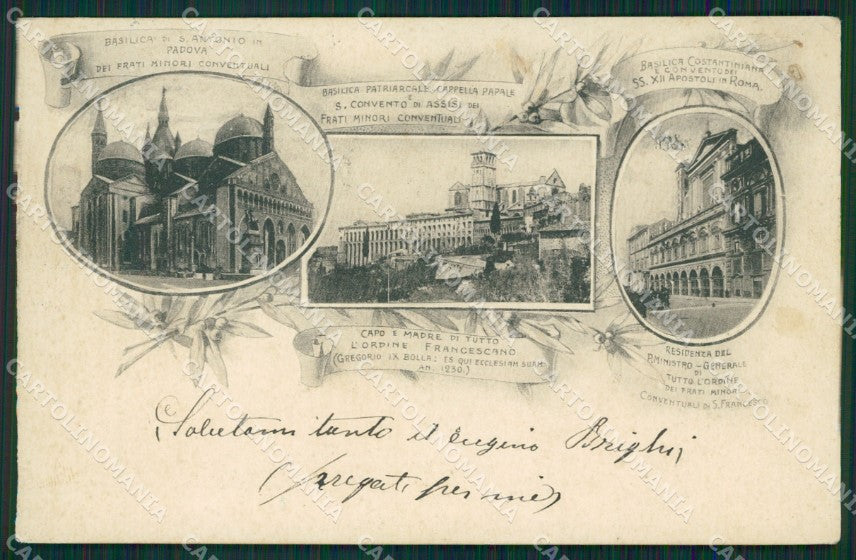 BASILICA DI S. ANTONIO IN
PADOVA
DEI FRATI MINORI CONVENTUALI
BASILICA PATRIARCALE CAPPELLA PAPALE
E
S. CONVENTO DI ASSISI DEI
FRATI MINORI CONVENTUALI
BASILICA COSTANTINIANA
E CONVENTO DEI
SS. XII APOSTOLI IN ROMA.
CAPO E MADRE DI TUTTO
L'ORDINE FRANCESCANO
(GREGORIO IX BOLLA: ES QUI ECCLESIAM SUAM
AN. 1230.)
RESIDENZA DEL
P. MINISTRO-GENERALE
DI
TUTTO L'ORDINE
DEI FRATI MINORI
CONVENTUALI DI S. FRANCESCO
Salutami tanto il Eugenio Brighi
CARTOLINOMANIA